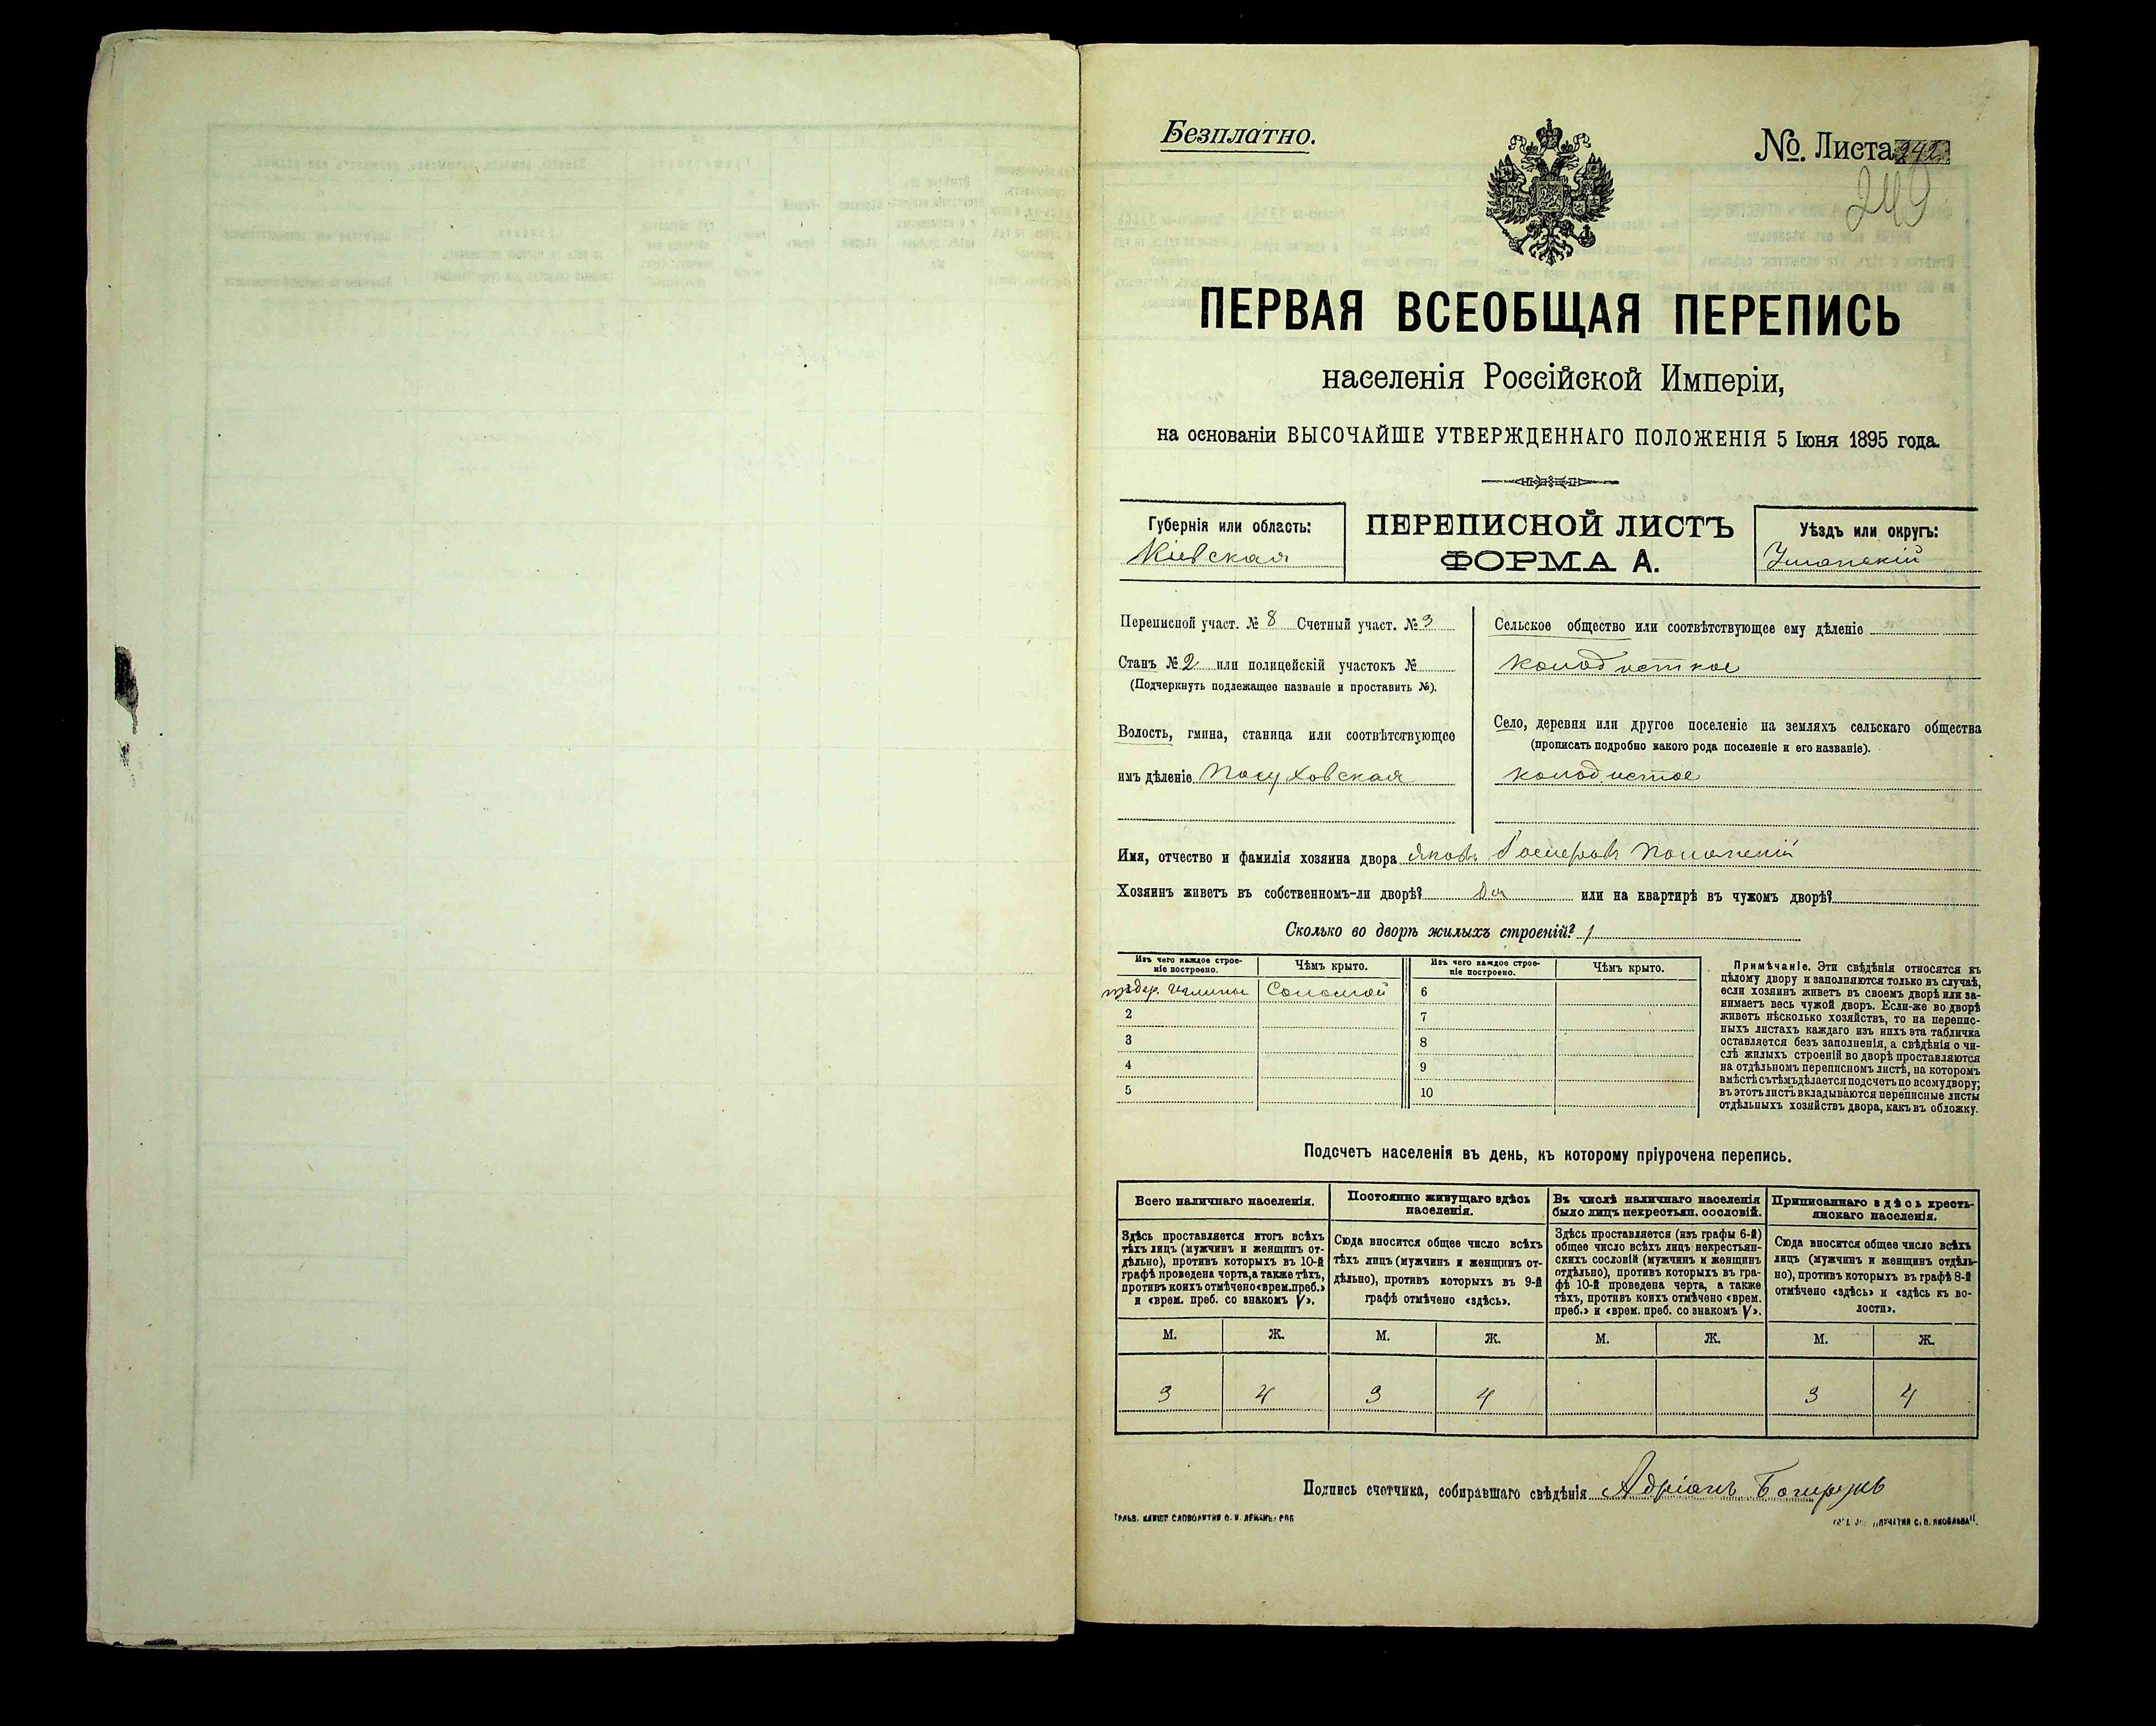 Безплатно.
№. Листа 242
249
ПЕРВАЯ ВСЕОБЩАЯ ПЕРЕПИСЬ
населенія Россійской Имперіи,
на основаніи ВЫСОЧАЙШЕ УТВЕРЖДЕННАГО ПОЛОЖЕНІЯ 5 Іюня 1895 года.
Губернія или область:
Кіевская
ПЕРЕПИСНОЙ ЛИСТЪ
ФОРМА А.
Уѣздъ или округъ:
Уманскій
Переписной участ. № 8 Счетный участ. № 3
Станъ № 2 или полицейскій участокъ №
(Подчеркнуть подлежащее названіе и проставить №).
Волость, гмина, станица или соотвѣтствующее
имъ дѣленіе Посуховская
Сельское общество или соотвѣтствующее ему дѣленіе
Колодистское
Село, деревня или другое поселеніе на земляхъ сельскаго общества
(прописать подробно какого рода поселеніе и его названіе).
Колодистое
Имя, отчество и фамилія хозяина двора Яковъ
Хозяинъ живетъ въ собственномъ-ли дворѣ? Да или на квартирѣ въ чужомъ дворѣ?
Сколько во дворѣ жилыхъ строеній? 1
Изъ чего каждое строе-
ніе построено.
Чѣмъ крыто.
Изъ чего каждое строе-
ніе построено.
Чѣмъ крыто.
дер. и глины Соломой 6
2 7
3 8
4 9
5 10
Примѣчаніе. Эти свѣдѣнія относятся къ
цѣлому двору и заполняются только въ случаѣ,
если хозяинъ живетъ въ своемъ дворѣ или за-
нимаетъ весь чужой дворъ. Если-же во дворѣ
живетъ нѣсколько хозяйствъ, то на перепис-
ныхъ листахъ каждаго изъ нихъ эта табличка
оставляется безъ заполненія, а свѣдѣнія о чи-
слѣ жилыхъ строеній во дворѣ проставляются
на отдѣльномъ переписномъ листѣ, на которомъ
вмѣстѣ съ тѣмъ дѣлается подсчетъ по всему двору;
въ этотъ листъ вкладываются переписные листы
отдѣльныхъ хозяйствъ двора, какъ въ обложку.
Подсчетъ населенія въ день, къ которому пріурочена перепись.
Всего наличнаго населенія.
Здѣсь проставляется итогъ всѣхъ
тѣхъ лицъ (мужчинъ и женщинъ от-
дѣльно), противъ которыхъ въ 10-й
графѣ проведена черта, а также тѣхъ,
противъ коихъ отмѣчено «врем. преб.»
и «врем. преб. со знакомъ V».
Постоянно живущаго здѣсь
населенія.
Сюда вносится общее число всѣхъ
тѣхъ лицъ (мужчинъ и женщинъ от-
дѣльно), противъ которыхъ въ 9-й
графѣ отмѣчено «здѣсь».
Въ числѣ наличнаго населенія
было лицъ некрестьян. сословій.
Здѣсь проставляется (изъ графы 6-й)
общее число всѣхъ лицъ некрестьян-
скихъ сословій (мужчинъ и женщинъ
отдѣльно), противъ которыхъ въ гра-
фѣ 10-й проведена черта, а также
тѣхъ, противъ коихъ отмѣчено «врем.
преб.» и «врем. преб. со знакомъ V».
Приписаннаго здѣсь кресть-
янскаго населенія.
Сюда вносится общее число всѣхъ
лицъ (мужчинъ и женщинъ отдѣль-
но), противъ которыхъ въ графѣ 8-й
отмѣчено «здѣсь» и «здѣсь къ во-
лости».
М. Ж. М. Ж. М. Ж. М. Ж.
3 4 3 4 3 4
Подпись счетчика, собиравшаго свѣдѣнія Адріанъ